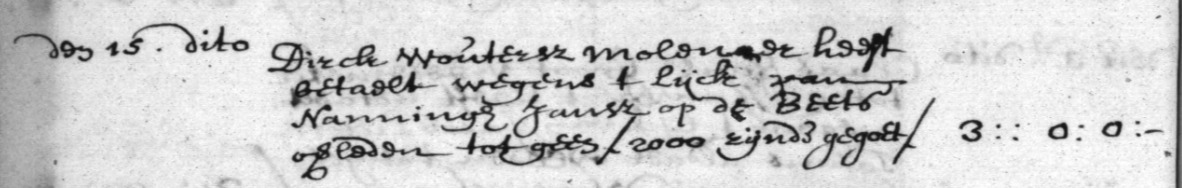 den 15. dito Dirck Woutersz molenaer heeft
betaelt wegens t lijck van
Nanningh Jansz op de Beets
overleden tot geen / 2000 zijnde gegoet / 3 :: 0 : 0 :-